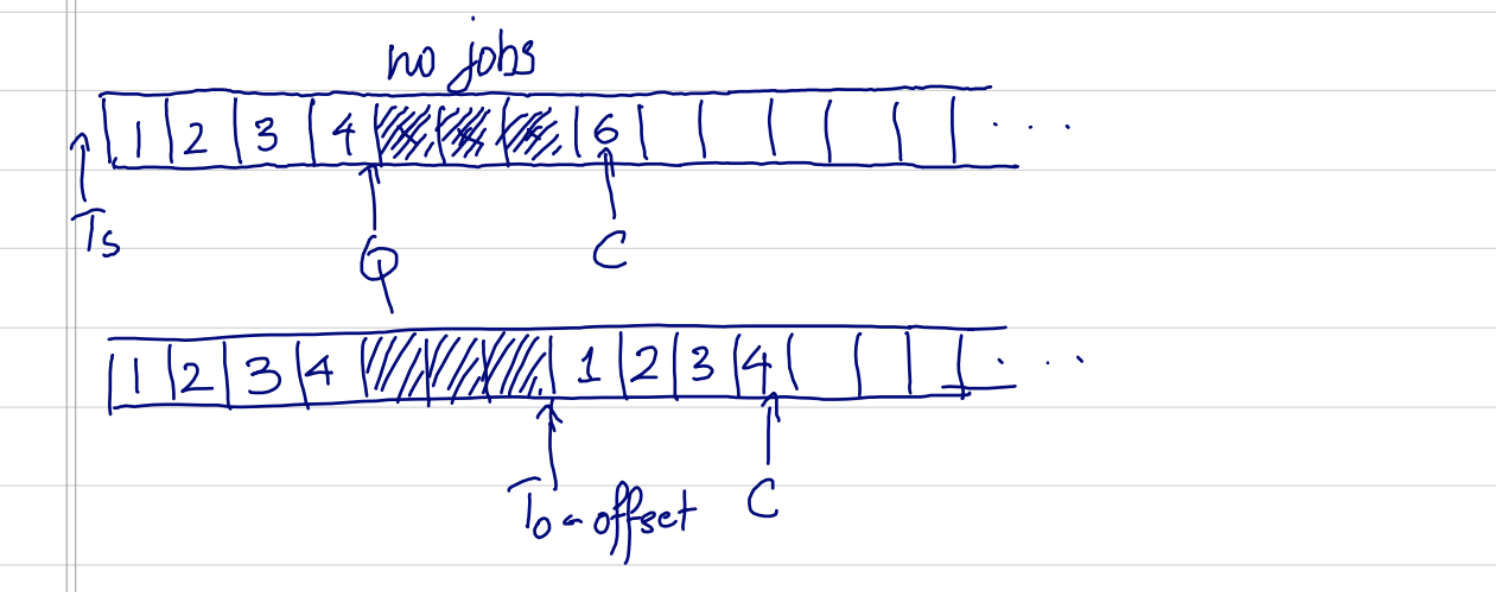 no jobs
1 2 3 4 6 . . .
Ts
Q C
1 2 3 4 1 2 3 4 . . .
To - offset C